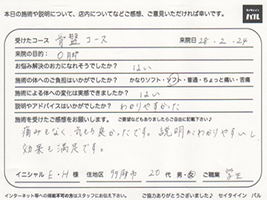 本日の施術や説明について、店内についてなどご感想、ご意見いただければ幸いです。
受けたコース 骨盤コース 来院日 28.2.24
来院の目的: O脚
お悩み解決のお力になれそうでしたか? はい
施術の体へのご負担はいかがでしたか? かなりソフト・ソフト・普通・ちょっと痛い・苦痛
施術による体への変化は実感できましたか? はい
説明やアドバイスはいかがでしたか? わかりやすかった
施術を受けたご感想をお願いします。
痛みもなく 気持ち良かったです。説明がわかりやすいし
効果も満足です。
イニシャル E・H 様 住地区 別府市 20代 男・女 ご職業 学生
インターネット等への掲載不可の方はスタッフにお伝え下さい。 ご協力ありがとうございました♪ セイタイイン パル